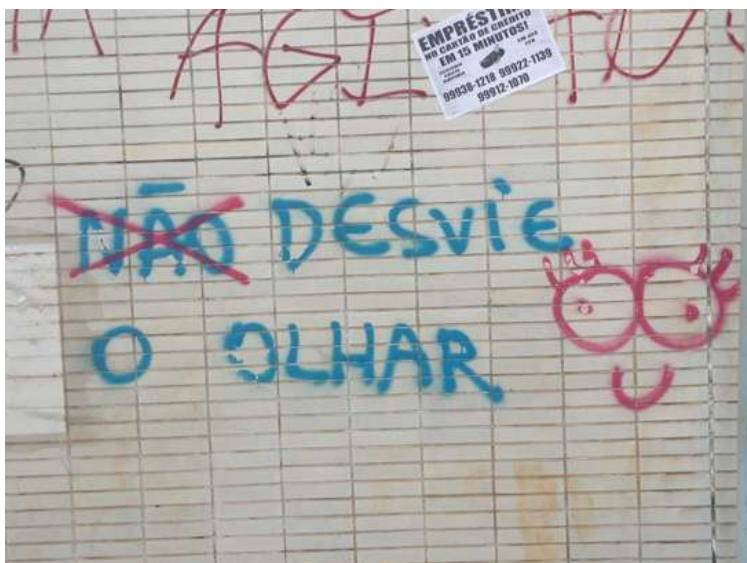 AGI
EMPRÉSTIM
NO CARTÃO DE CRÉDITO
EM 15 MINUTOS!
99938-1218 99922-1139
99912-1070
NÃO DESVIE
O OLHAR